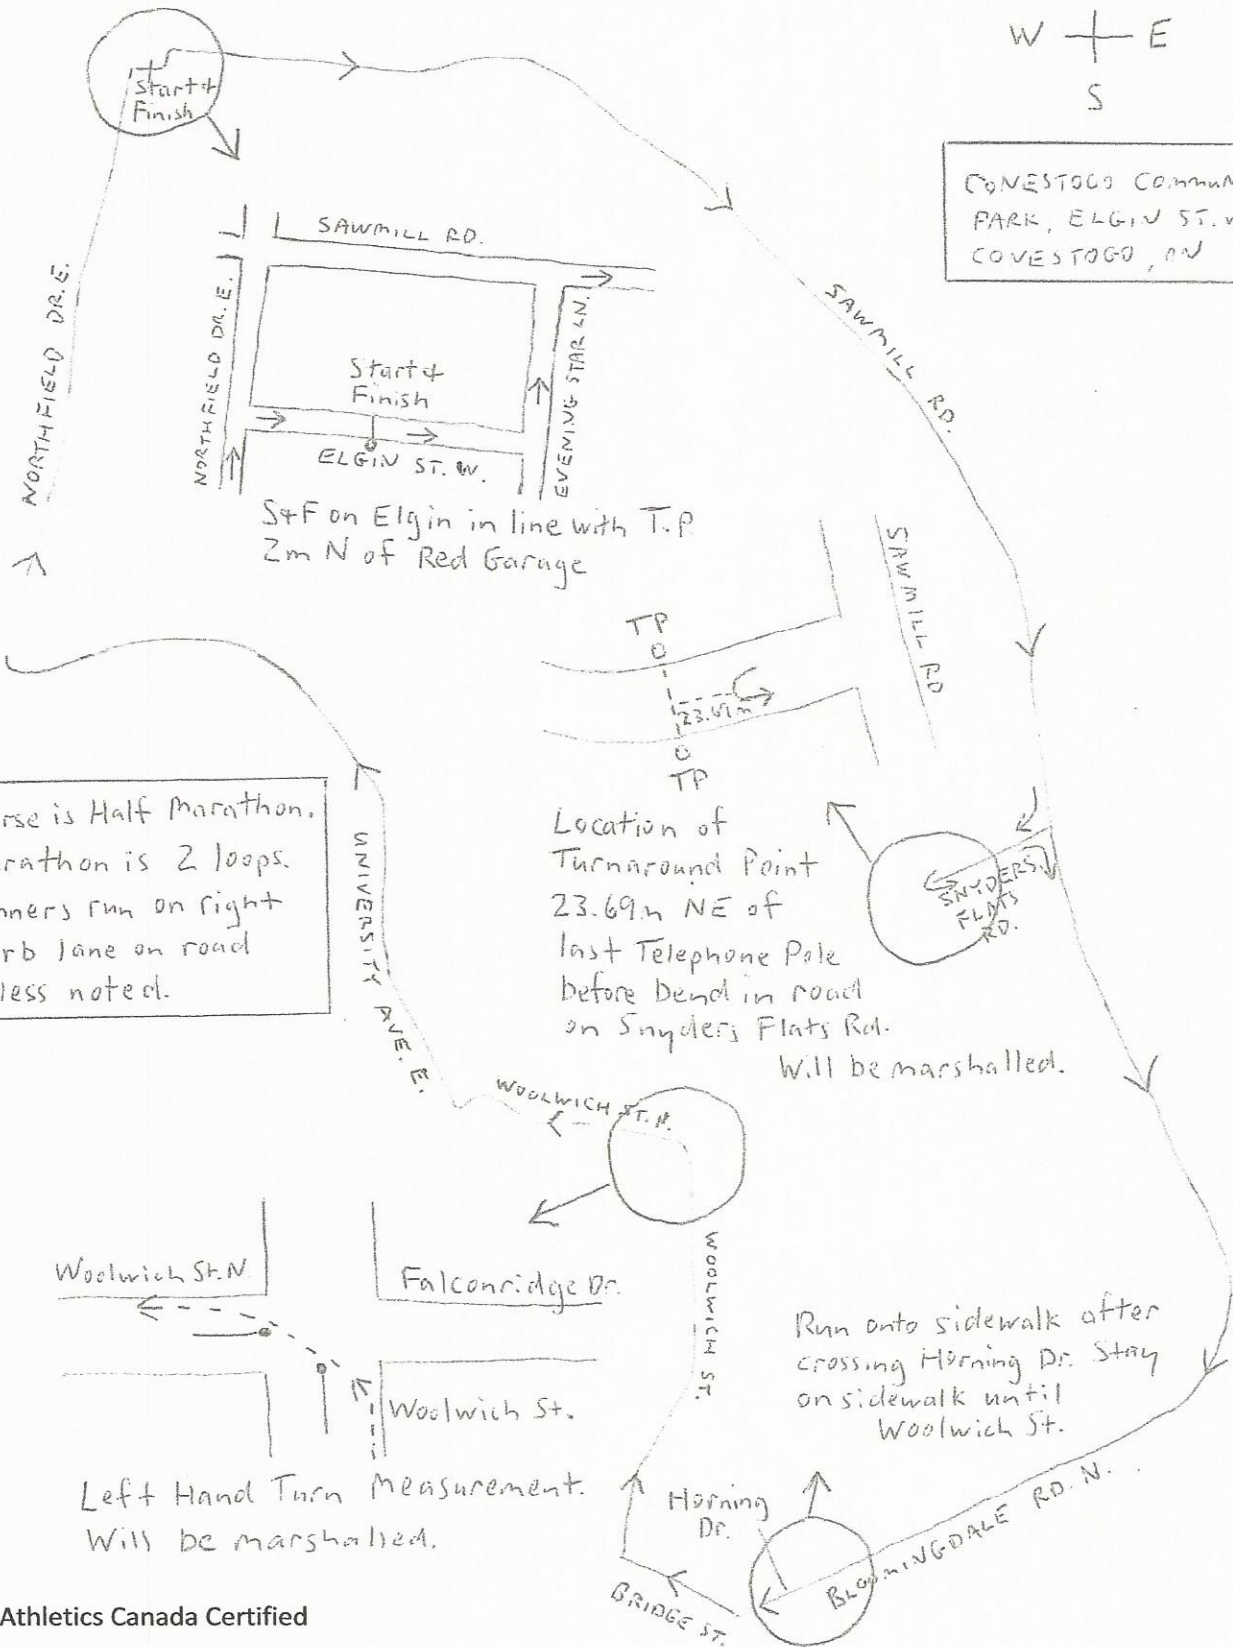 W E
S
Start &
Finish
CONESTOGO
PARK, ELGIN ST.
CONESTOGO, ON
NORTHFIELD DR. E.
SAWMILL RD.
NORTHFIELD DR. E.
Start &
Finish
EVENING STAR LN.
ELGIN ST. W.
S+F on Elgin in line with T.P.
2m N of Red Garage
SAWMILL RD.
SAWMILL RD
TP
23.69m
TP
Location of
Turnaround Point
23.69m NE of
last Telephone Pole
before bend in road
on Snyders Flats Rd.
Will be marshalled.
SNYDERS
FLATS
RD.
rse is Half Marathon.
rathon is 2 loops.
nners run on right
rb lane on road
less noted.
UNIVERSITY AVE. E.
WOOLWICH ST. N.
WOOLWICH ST.
Woolwich St. N
Falconridge Dr.
Woolwich St.
Left Hand Turn Measurement.
Will be marshalled.
Run onto sidewalk after
crossing Horning Dr. Stay
on sidewalk until
Woolwich St.
Horning
Dr.
BLOOMINGDALE RD. N.
BRIDGE ST.
Athletics Canada Certified